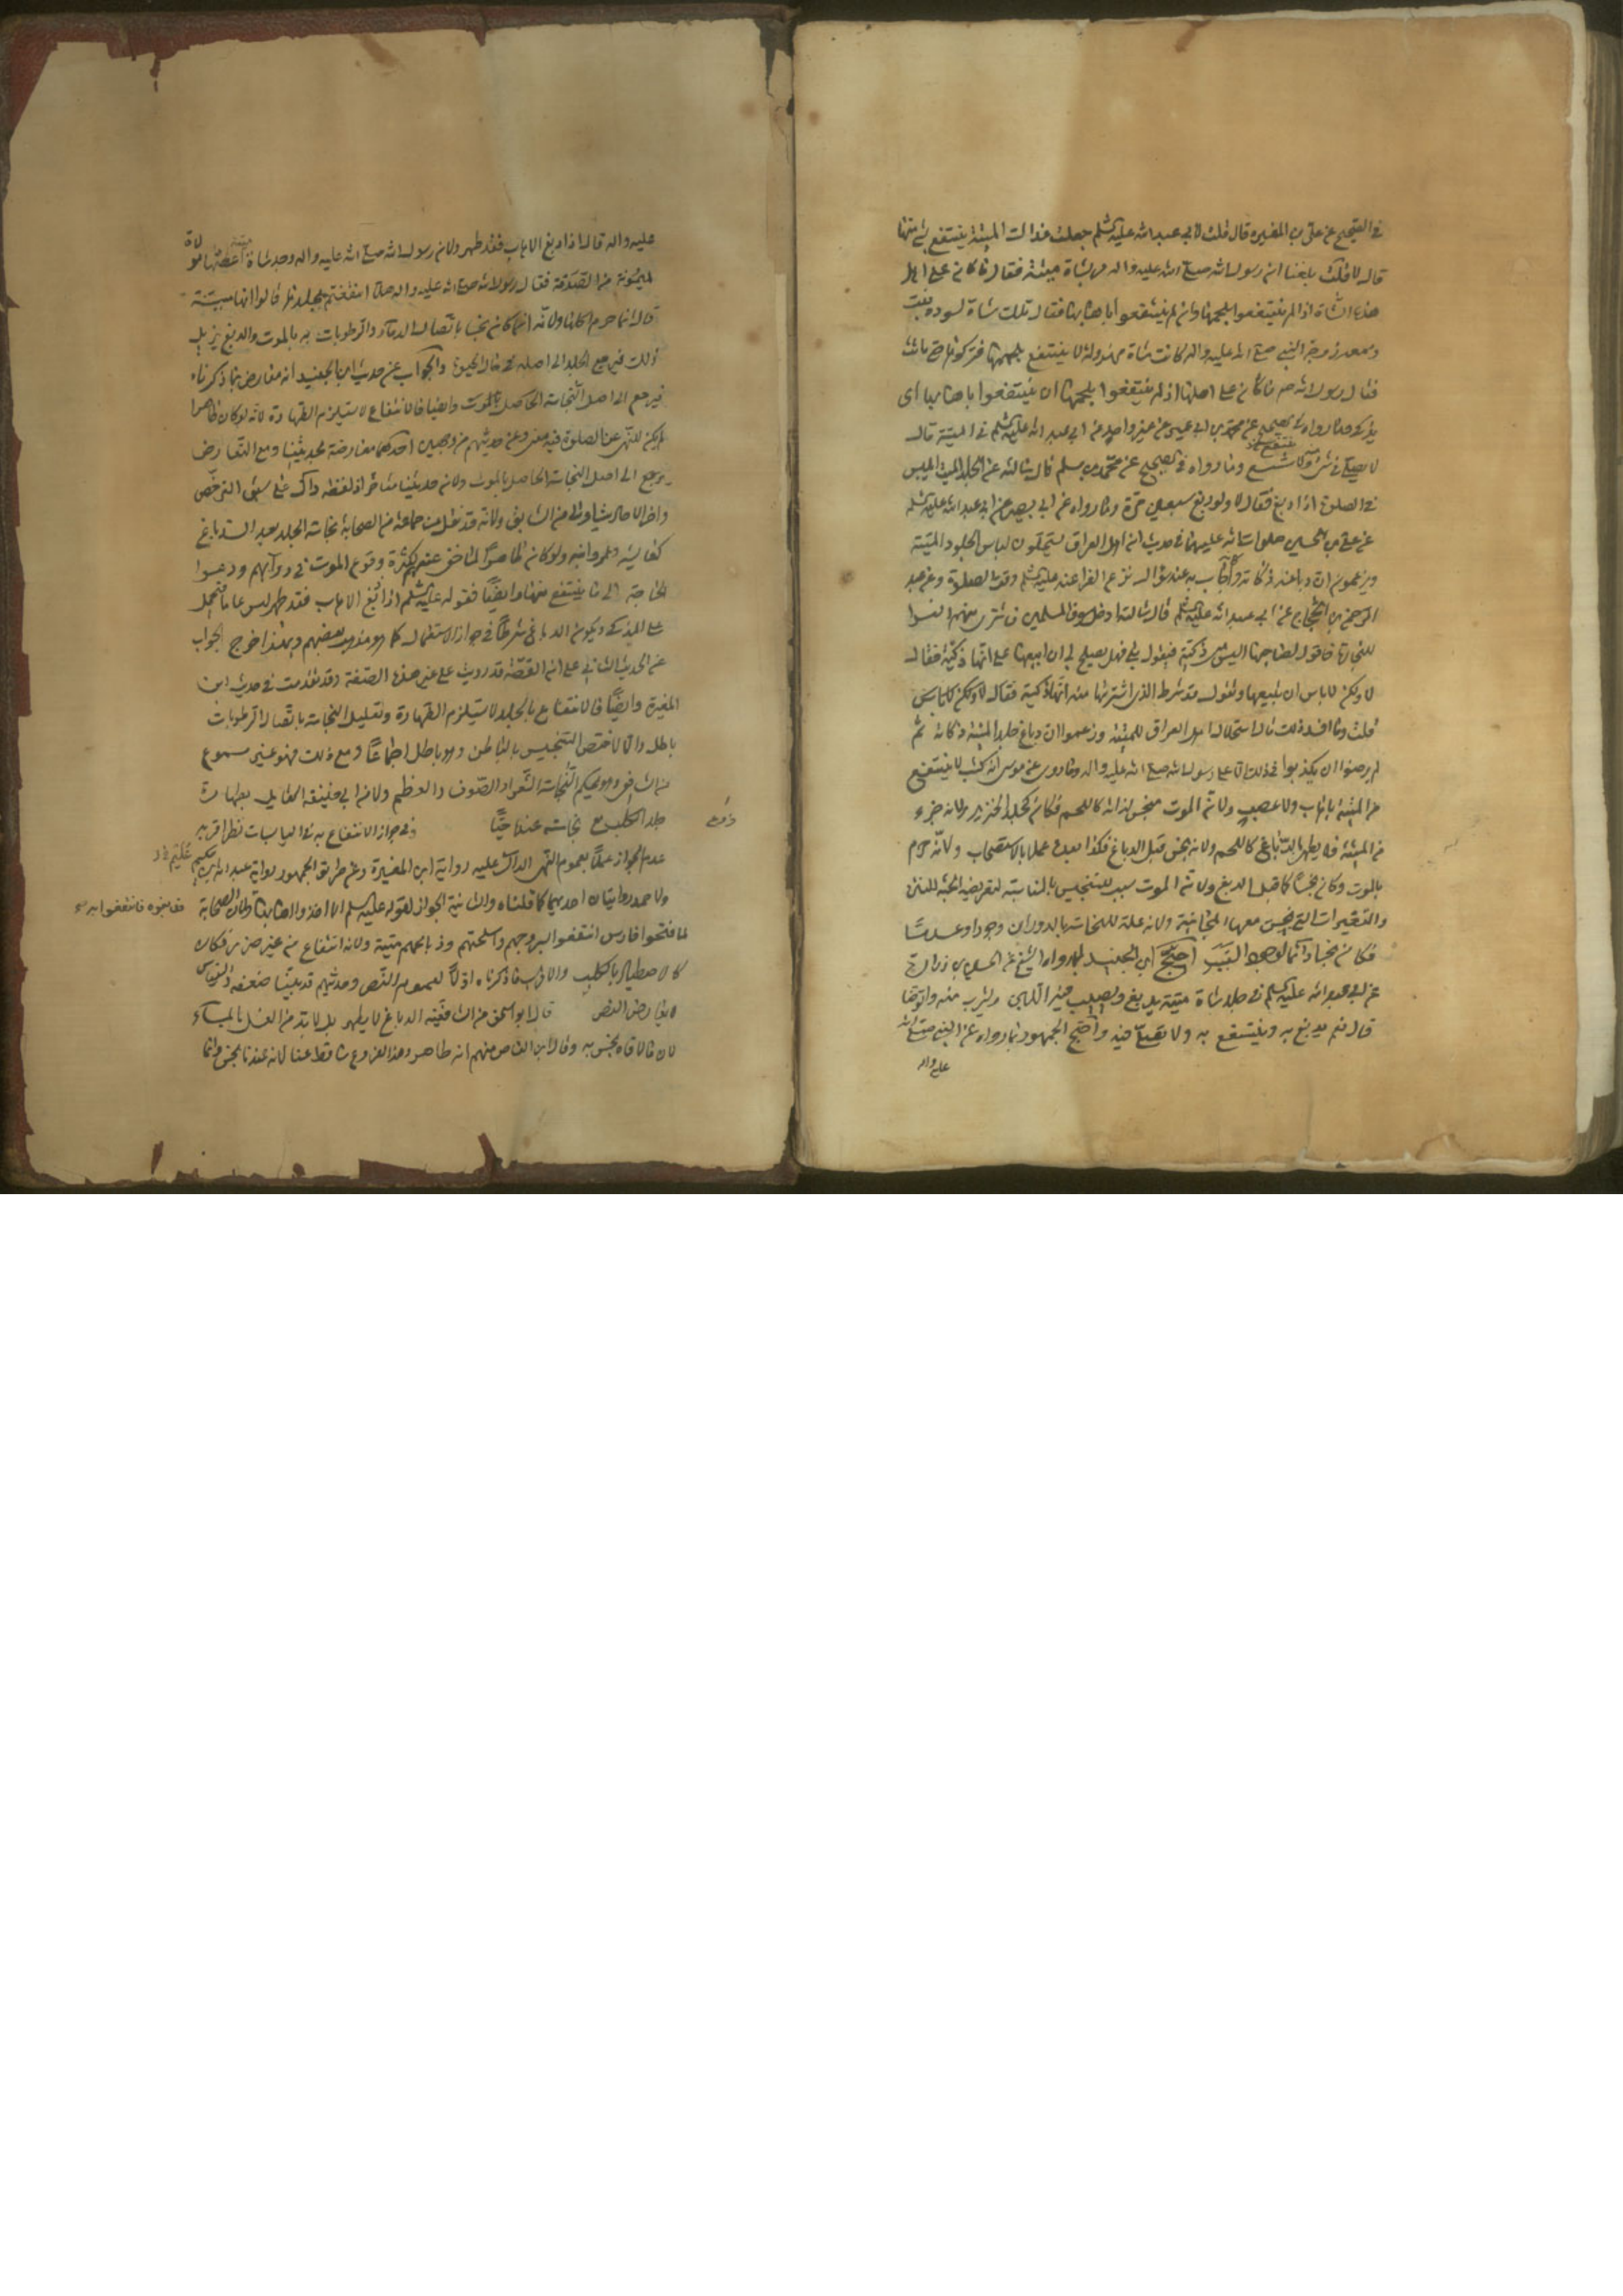 في الصحيح عن علي بن المغيرة قال قلت لابي عبد الله عليه السلم جعلت فداك الميتة ينتفع بشئ منها
قال لا قلت بلغنا ان رسول الله صلى الله عليه واله مر بشاة ميتة فقال ما كان على اهل
هذه الشاة اذا لم ينتفعوا بلحمها ان ينتفعوا باهابها فقال تلك شاة لسودة بنت
زمعة زوجة النبي صلى الله عليه واله كانت شاة مهزولة لا ينتفع بلحمها فتركوها حتى ماتت
فقال رسول الله ص ما كان على اهلها اذ لم ينتفعوا بلحمها ان ينتفعوا باهابها اي
يذكى وما رواه في الصحيح عن محمد بن ابي عمير عن غير واحد عن ابي عبد الله عليه السلم في الميتة قال
لا تصل في شئ منه ولا شسع وما رواه في الصحيح عن محمد بن مسلم قال سالته عن الجلد الميت ايلبس
في الصلوة اذا دبغ فقال لا ولو دبغ سبعين مرة وما رواه عن ابي بصير عن ابي عبد الله عليه السلم
عن علي بن الحسين صلوات الله عليهما في حديث ان اهل العراق يستحلون لباس الجلود الميتة
ويزعمون ان دباغه ذكاته وعن عبد
الرحمن بن الحجاج عن ابي عبد الله عليه السلم قال سالته ادخل سوق المسلمين فاشتري منهم الفراء
للتجارة فاقول لصاحبها اليس هي ذكية فيقول بلى فهل يصلح لي ان ابيعها على انها ذكية فقال
لا ولكن لا باس ان تبيعها وتقول قد شرط الذي اشتريتها منه انها ذكية
قلت وما افسد ذلك قال استحلال اهل العراق للميتة وزعموا ان دباغ جلد الميتة ذكاته ثم
لم يرضوا ان يكذبوا في ذلك الا على رسول الله صلى الله عليه واله
من الميتة باهاب ولا عصب ولان الموت منجس لذاته كاللحم فكان كجلد الخنزير ولانه جزء
من الميتة فلا يطهر بالدباغ كاللحم ولانه نجس قبل الدباغ فكذا بعده عملا بالاستصحاب ولانه حرم
بالموت وكان نجسا كما قبل الدبغ ولان الموت سبب للتنجيس
ولانه علة للنجاسة بالدوران وجودا وعدما
فكان نجسا دائما لوجود السبب احتج ابن الجنيد بما رواه الشيخ عن الحسين بن زرارة
عن ابي عبد الله عليه السلم في جلد شاة ميتة يدبغ ويصب فيه اللبن واشرب منه واتوضا
قال نعم يدبغ به وينتفع به ولا يصلى فيه واحتج الجمهور بما رواه عن النبي صلى الله
عليه واله
عليه واله قال اذا دبغ الاهاب فقد طهر ولان رسول الله صلى الله عليه واله وجد شاة ميتة اعطيتها مولاة
لميمونة من الصدقة فقال رسول الله صلى الله عليه واله هلا انتفعتم بجلدها قالوا انها ميتة
قال انما حرم اكلها ولانه انما كان نجسا باتصال الدماء والرطوبات به بالموت والدبغ يزيل
ذلك فيرجع الجلد الى اصله في حال الحيوة والجواب عن حديث ابن الجنيد انه معارض بما ذكرناه
فيرجع الى اصل النجاسة الحاصل بالموت وايضا فالانتفاع لا يستلزم الطهارة لانه لو كان طاهرا
لم يكن للنهي عن الصلوة فيه معنى وعن حديثهم من وجهين احدهما معارضة بحديثنا ومع التعارض
يرجع الى اصل النجاسة الحاصل بالموت ولان حديثنا متاخر اذ لفظه دال على سبق الترخص
واخر الامرين اولى من السابق ولانه قد نقل من جماعة من الصحابة نجاسة الجلد بعد الدباغ
كعايشة وعمر وابنه ولو كان طاهرا لما خفي عنهم لكثرة وقوع الموت في دوابهم ودعوا
الحاجة الى ما ينتفع منها وايضا فقوله عليه السلم اذا دبغ الاهاب فقد طهر ليس عاما فنحمل
على المذكى ويكون الدباغ شرطا في جواز الاستعمال كما هو مذهب بعضهم وبهذا خرج الجواب
عن الحديث الثاني على ان القصة قد رويت على غير هذه الصفة وقد تقدمت في حديث ابن
المغيرة وايضا فالانتفاع بالجلد لا يستلزم الطهارة وتعليل النجاسة باتصال الرطوبات
باطل والا لاختص التنجيس بالباطن وهو باطل اجماعا ومع ذلك فهو غير مسموع
من الشافعي وهو يحكم النجاسة الشعر والصوف والعظم ولا من ابي حنيفة القايل بطهارة
جلد الكلب مع نجاسته عندنا حيا في جواز الانتفاع به في اليابسات نظر اقربه
عدم الجواز عملا بعموم النهي الدال عليه رواية ابن المغيرة ومن طريق الجمهور رواية عبد الله بن عكيم
ولاحمد روايتان احديهما كما قلناه والثانية الجواز لقوله عليه السلم الا اخذوا اهابها ولان الصحابة
فدبغوه فانتفعوا به
لما فتحوا فارس انتفعوا بسروجهم واسلحتهم وذبايحهم ميتة ولانه انتفاع من غير ضرر فكان
كالاصطياد بالكلب والاقرب ما ذكرناه اولا لعموم النص وحديثهم قد بينا ضعفه والقياس
لا يعارض النص قال ابو اسحق من الشافعية الدباغ لا يطهر بل لا بد من الغسل بالماء
لان ما لاقاه نجس به وقال ابن القاص منهم انه طاهر وهذا الفرع ساقط عنا لانه عندنا نجس وانما